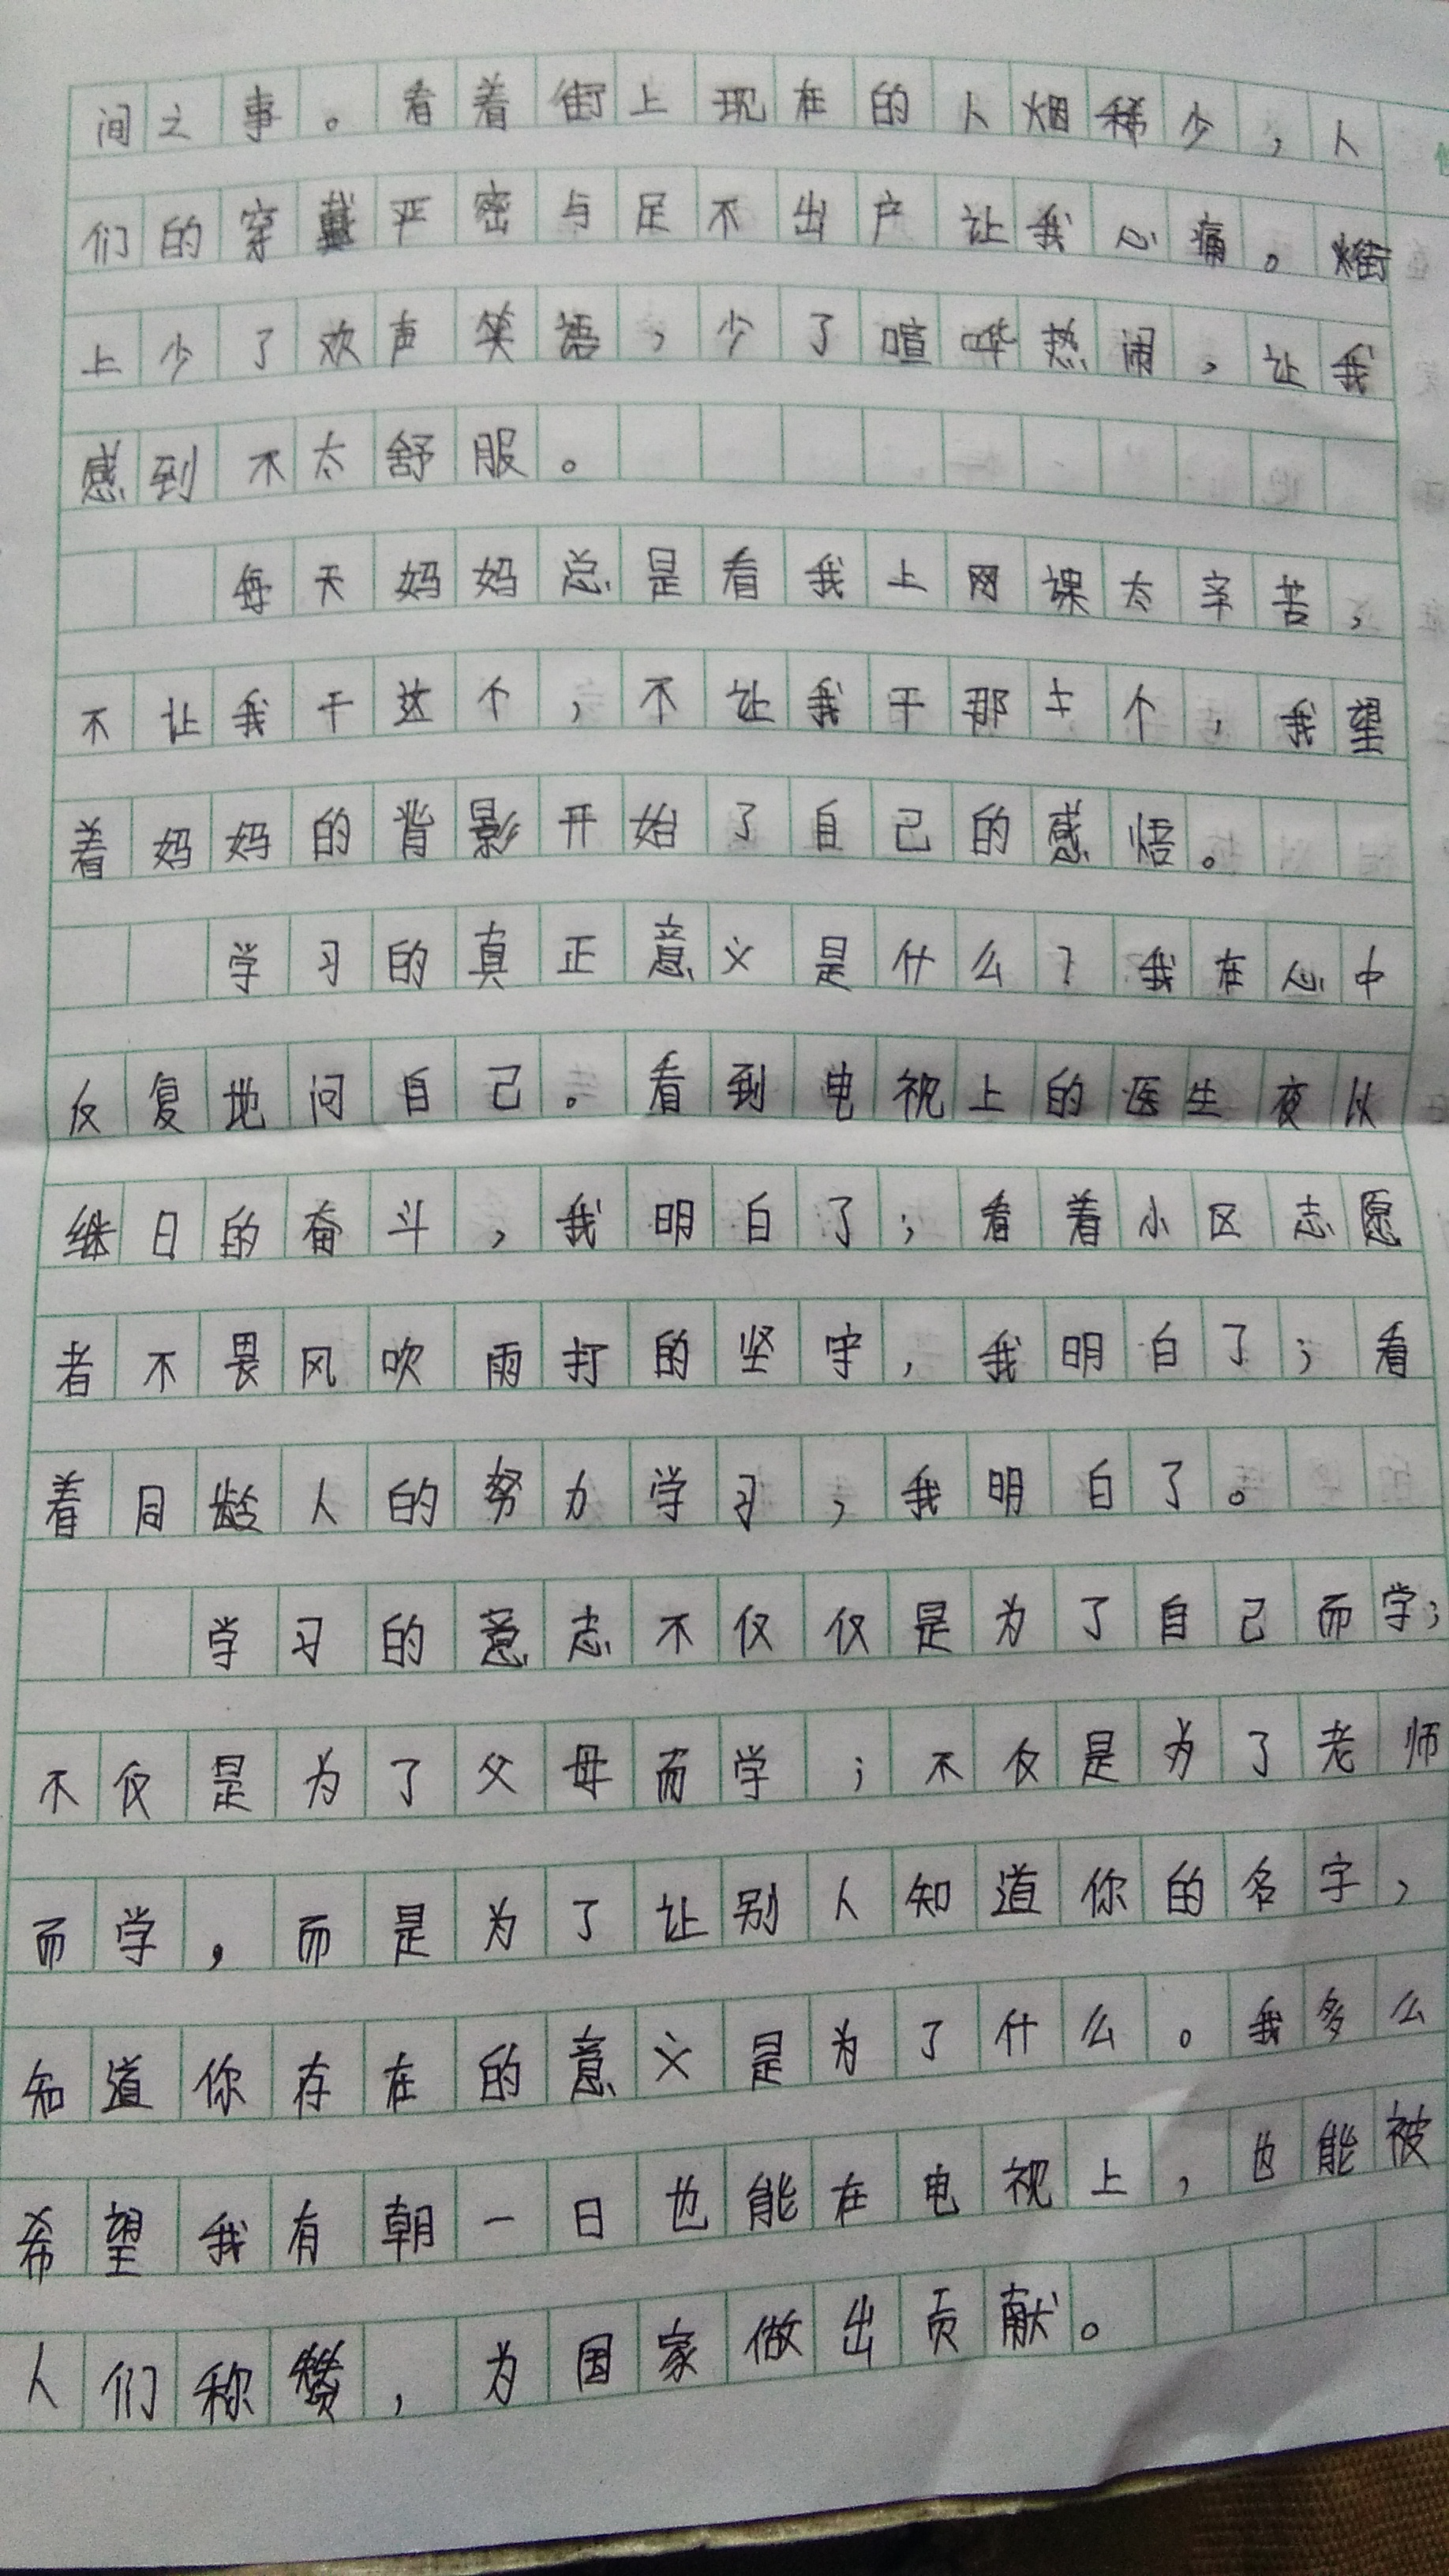 间之事。看着街上现在的人烟稀少，人
们的穿戴严密与足不出户让我心痛。街
上少了欢声笑语，少了喧哗热闹，让我
感到不太舒服。
每天妈妈总是看我上网课太辛苦，
不让我干这个，不让我干那个，我望
着妈妈的背影开始了自己的感悟。
学习的真正意义是什么？我在心中
反复地问自己。看到电视上的医生夜以
继日的奋斗，我明白了；看着小区志愿
者不畏风吹雨打的坚守，我明白了；看
着同龄人的努力学习，我明白了。
学习的意志不仅仅是为了自己而学；
不仅是为了父母而学；不仅是为了老师
而学，而是为了让别人知道你的名字，
知道你存在的意义是为了什么。我多么
希望我有朝一日也能在电视上，也能被
人们称赞，为国家做出贡献。